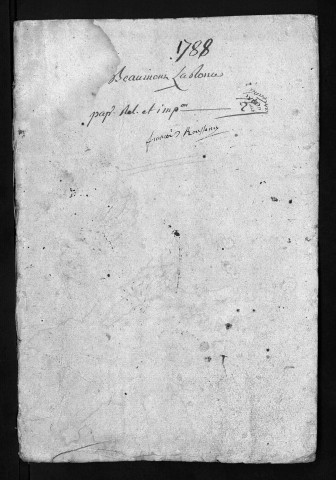 1788
Beaumont La Ronce
papr. Rel. et impon
2
françois Rousseau